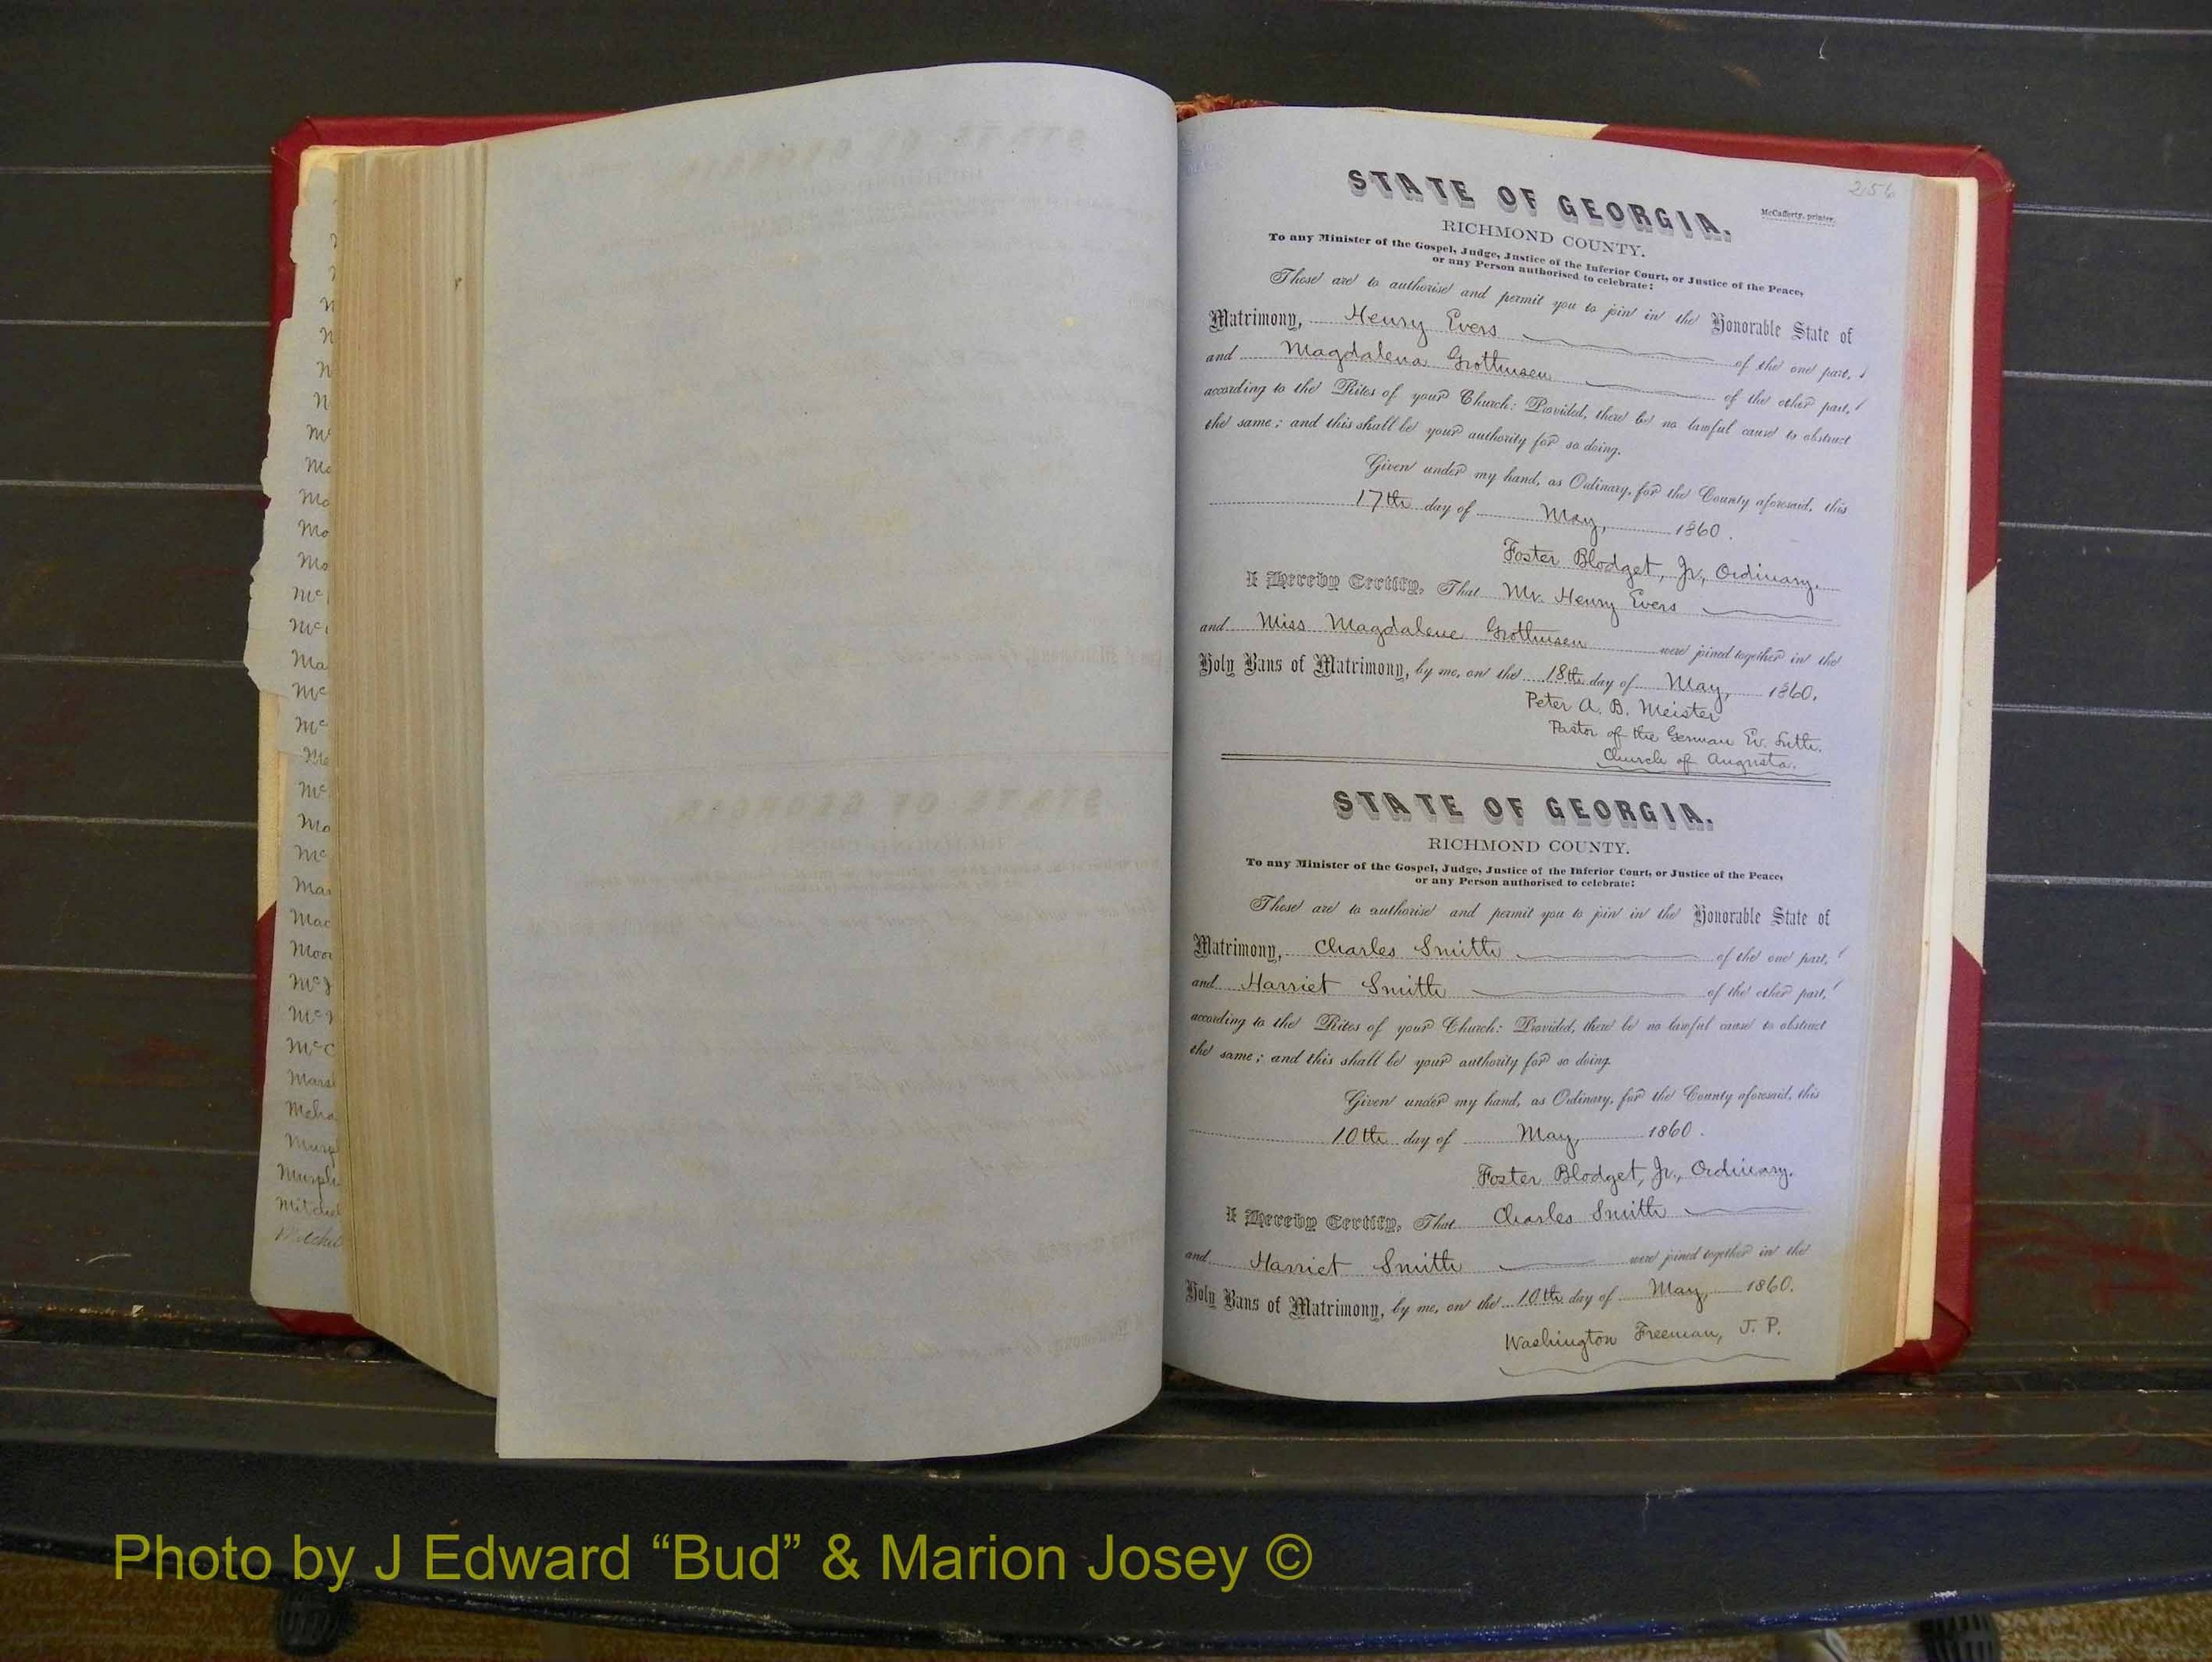 256
STATE OF GEORGIA.
McCafferty, printer.
RICHMOND COUNTY.
To any Minister of the Gospel, Judge, Justice of the Inferior Court, or Justice of the Peace,
or any Person authorised to celebrate:
These are to authorise and permit you to join in the Honorable State of
Matrimony, Henry Evers of the one part,
and Magdalena Grothusen of the other part,
according to the Rites of your Church: Provided, there be no lawful cause to obstruct
the same; and this shall be your authority for so doing.
Given under my hand, as Ordinary, for the County aforesaid, this
17th day of May, 1860.
Foster Blodget, Jr., Ordinary.
I Hereby Certify, That Mr. Henry Evers
and Miss Magdalene Grothusen were joined together in the
Holy Bans of Matrimony, by me, on the 18th day of May, 1860.
Peter A. B. Meister
Pastor of the German Ev. Luth.
Church of Augusta.
STATE OF GEORGIA.
RICHMOND COUNTY.
To any Minister of the Gospel, Judge, Justice of the Inferior Court, or Justice of the Peace,
or any Person authorised to celebrate:
These are to authorise and permit you to join in the Honorable State of
Matrimony, Charles Smith of the one part,
and Harriet Smith of the other part,
according to the Rites of your Church: Provided, there be no lawful cause to obstruct
the same; and this shall be your authority for so doing.
Given under my hand, as Ordinary, for the County aforesaid, this
10th day of May, 1860.
Foster Blodget, Jr., Ordinary.
I Hereby Certify, That Charles Smith
and Harriet Smith were joined together in the
Holy Bans of Matrimony, by me, on the 10th day of May, 1860.
Washington Freeman, J. P.
Photo by J Edward “Bud” & Marion Josey ©